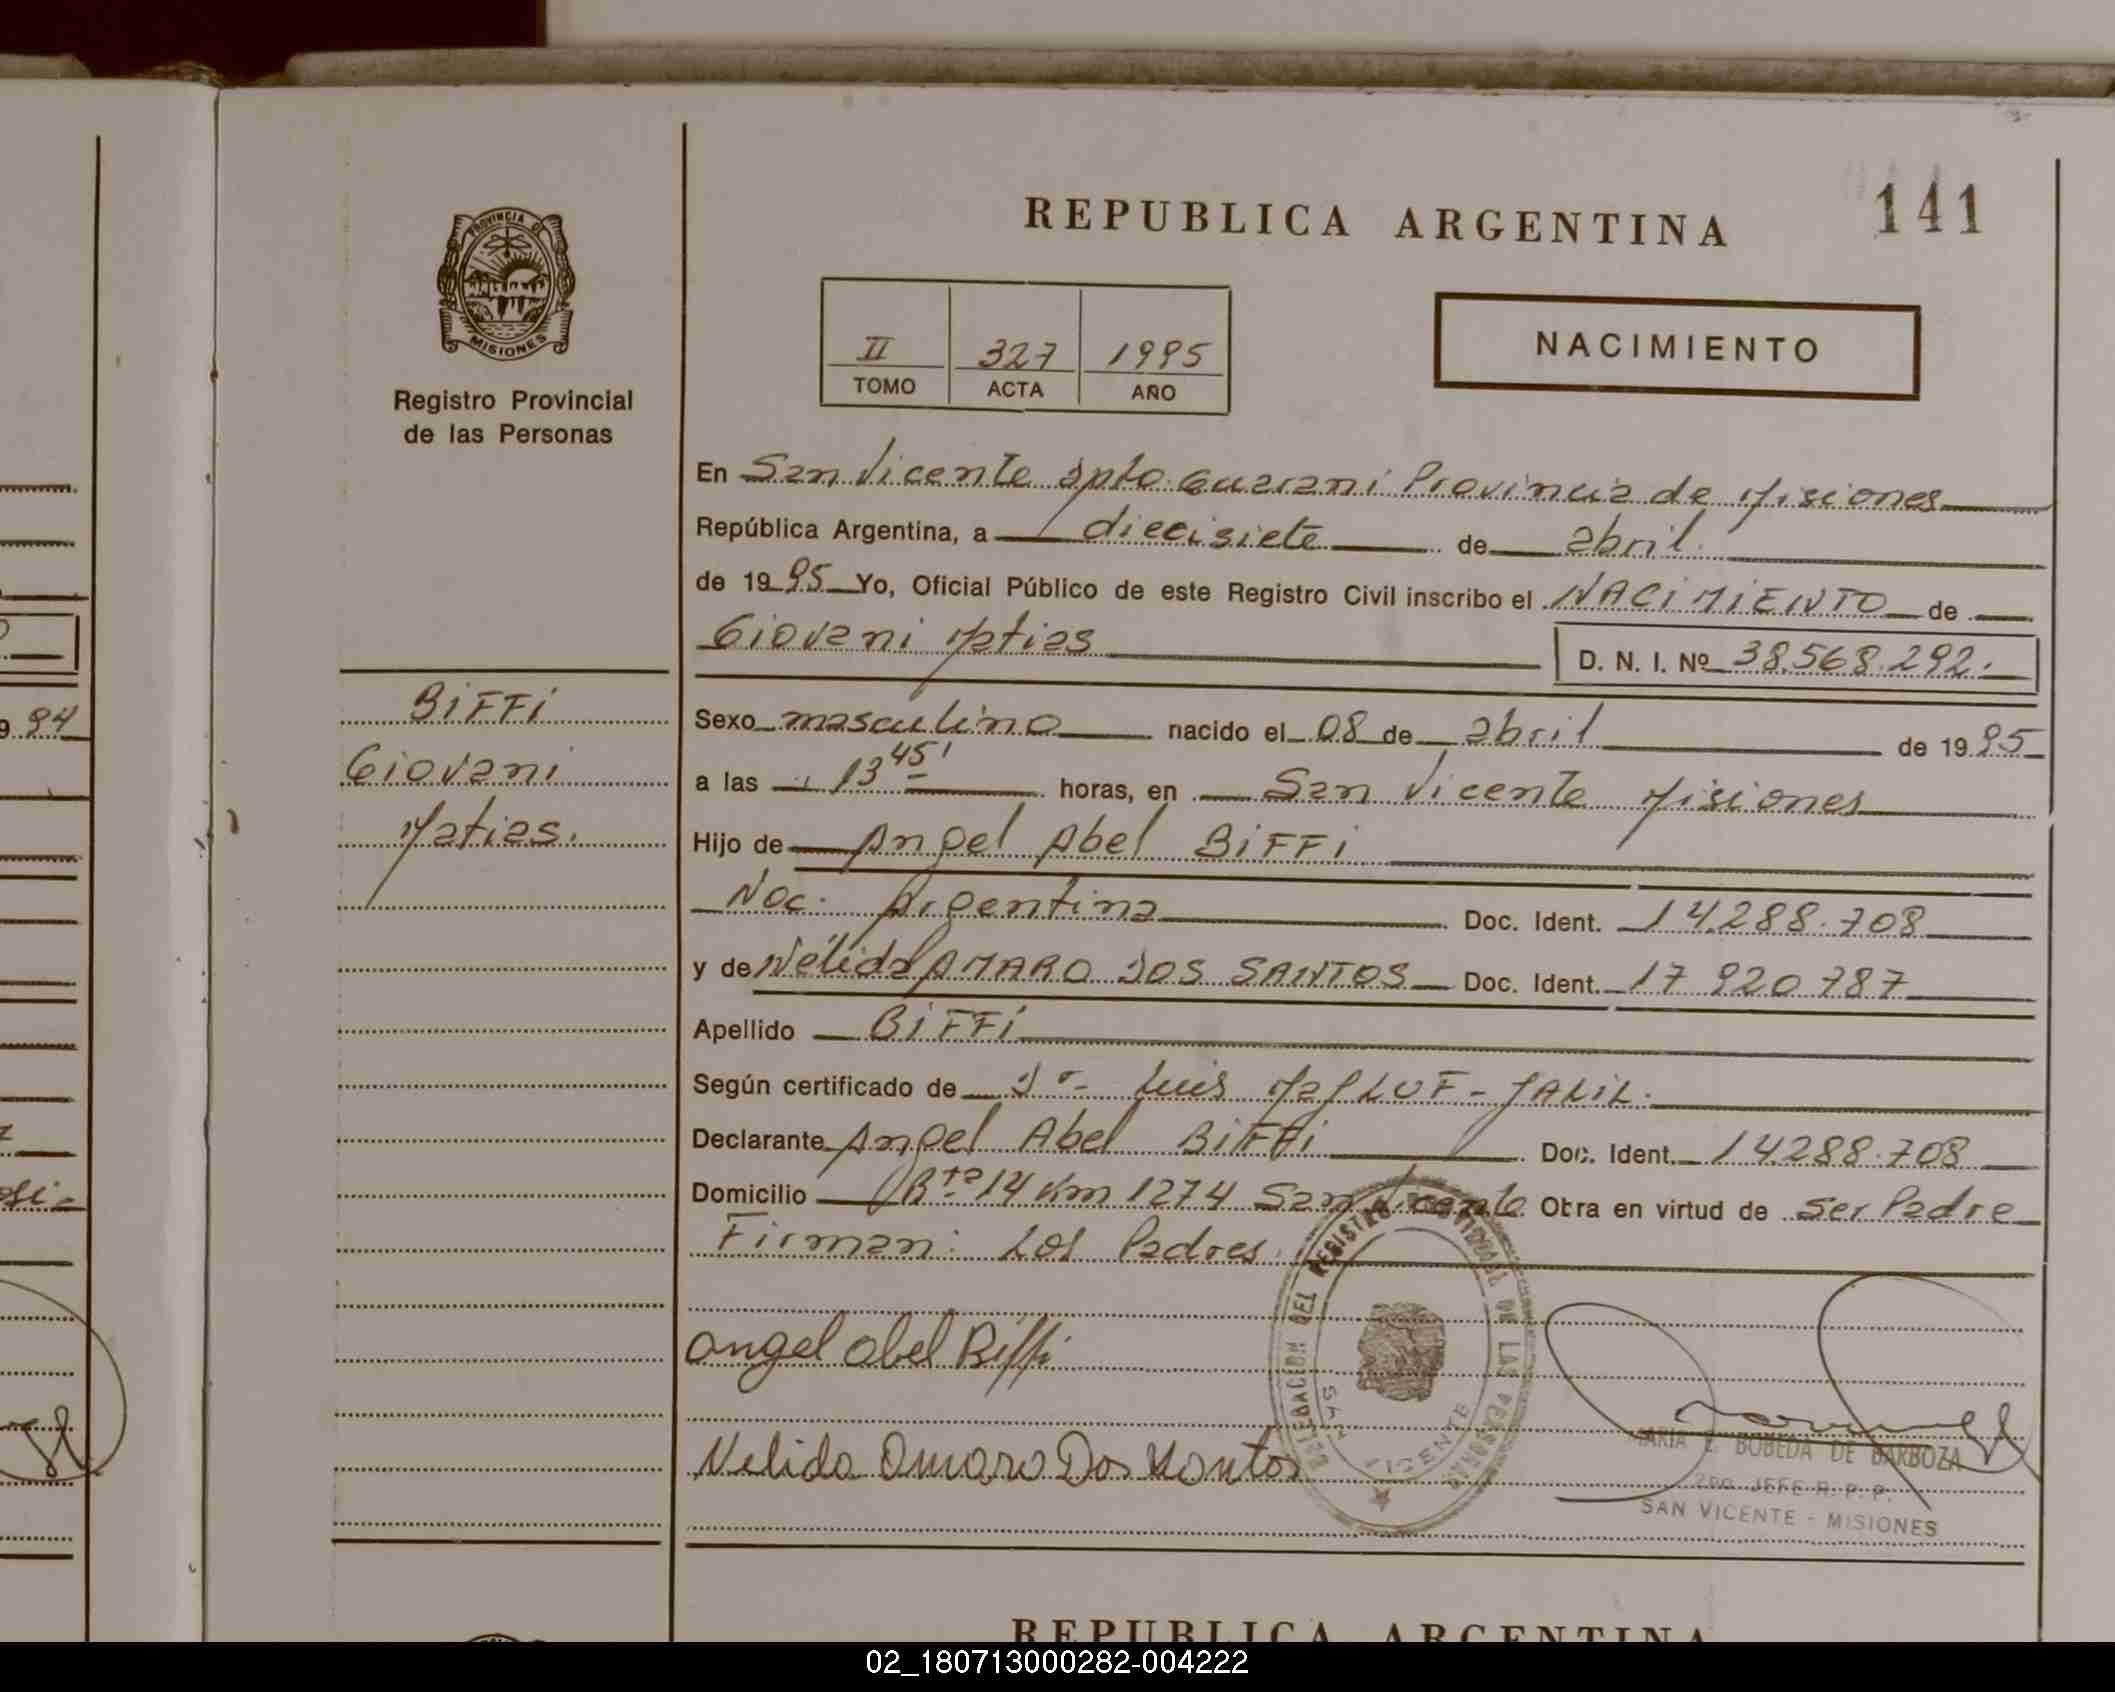 REPUBLICA ARGENTINA
141
PROVINCIA DE
MISIONES
Registro Provincial
de las Personas
II 327 1995
TOMO ACTA AÑO
NACIMIENTO
En San Vicente Dpto Guarani Provincia de Misiones
República Argentina, a diecisiete de abril
de 1995 Yo, Oficial Público de este Registro Civil inscribo el NACIMIENTO de
Giovani Matias
D. N. I. Nº 38.568.292.
BIFFI
Giovani
Matias.
Sexo masculino nacido el 08 de abril de 1995
a las 13 45' horas, en San Vicente Misiones
Hijo de Angel Abel BIFFI
Nac. Argentina Doc. Ident. 14.288.708
y de Nélida AMARO DOS SANTOS Doc. Ident. 17 920 787
Apellido BIFFI
Según certificado de Dr Luis MaJLUF-JALIL.
Declarante Angel Abel BIFFI Doc. Ident. 14288.708
Domicilio Rta 14 Km 1274 San Vicente Otra en virtud de ser Padre
Firman: Los Padres.
DELEGACION DEL REGISTRO PROVINCIAL DE LAS PERSONAS
SAN VICENTE
Angel Abel Biffi
Nelida Amaro Dos Santos
MARIA E. BOBEDA DE BARBOZA
2DO. JEFE R. P. P.
SAN VICENTE - MISIONES
94
REPUBLICA ARGENTINA
02_180713000282-004222